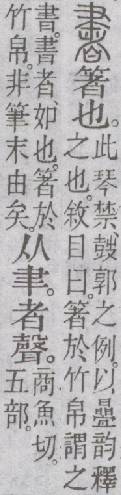 書箸也。此琴禁鼔郭之例。以疊韵釋之也。敍目曰。箸於竹帛謂之
書。書者、如也。箸於竹帛。非筆末由矣。从聿。者聲。商魚切。五部。